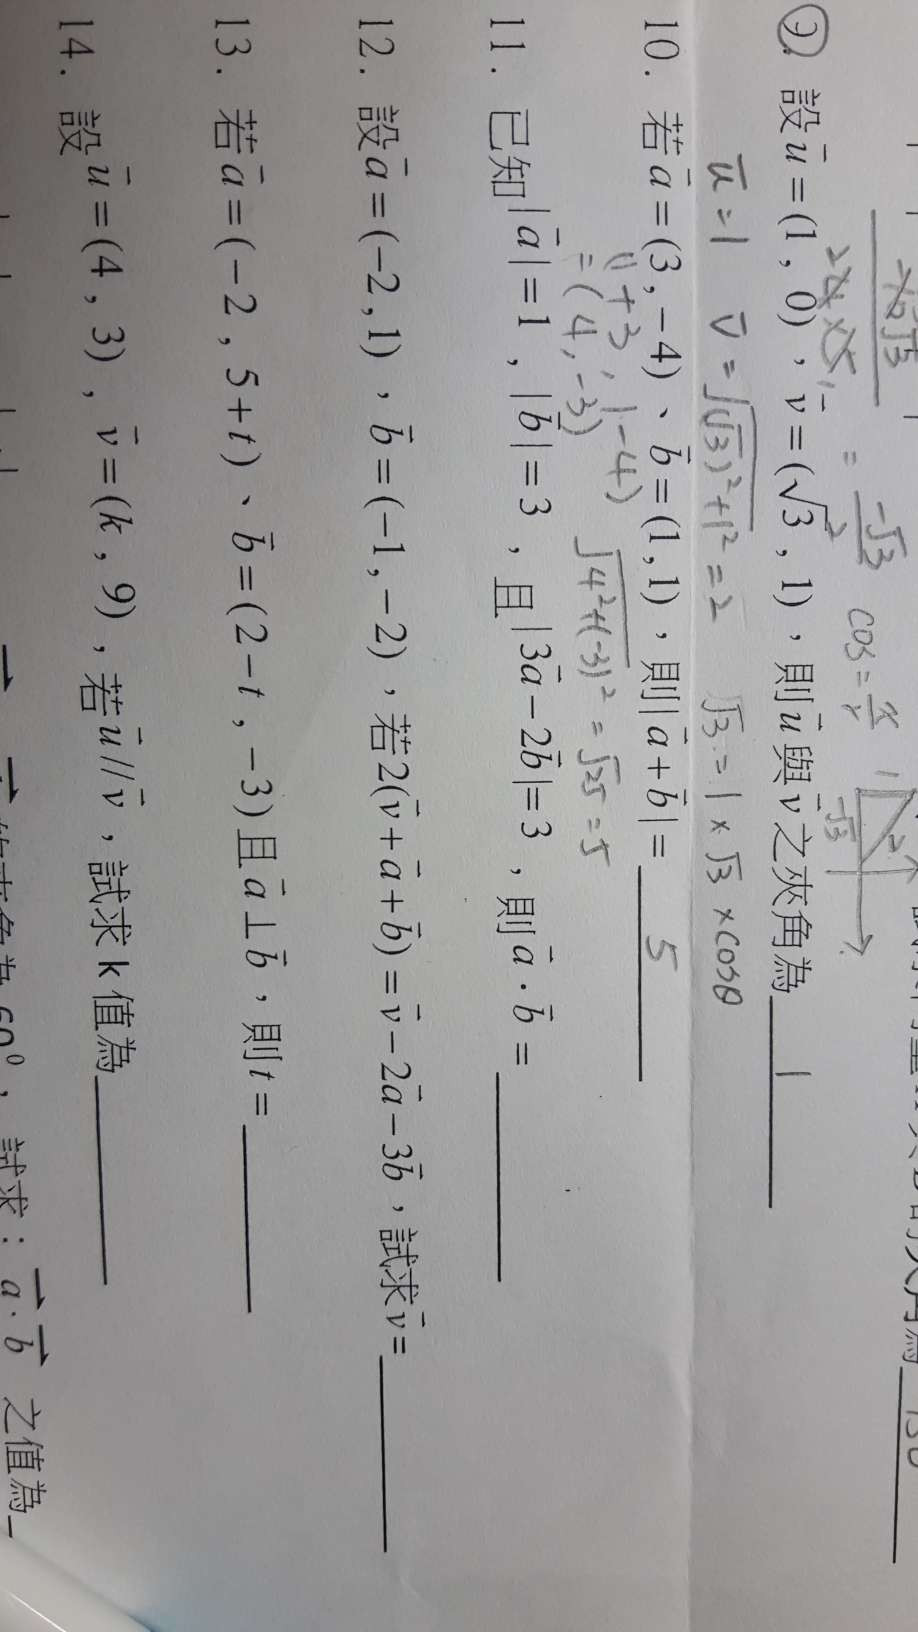 -√3
= -√3 cos = x/r
2 1 -√3
9. 設u=(1,0),v=(√3,1),則u與v之夾角為 1
u=1 v=√(√3)²+1² = 2 √3=1×√3×cosθ
10. 若a=(3,-4)、b=(1,1),則|a+b|= 5
(1+3,1-4)
=(4,-3) √4²+(-3)² = √25 = 5
11. 已知|a|=1,|b|=3,且|3a-2b|=3,則a·b=
12. 設a=(-2,1),b=(-1,-2),若2(v+a+b)=v-2a-3b,試求v=
13. 若a=(-2,5+t)、b=(2-t,-3)且a⊥b,則t=
14. 設u=(4,3),v=(k,9),若u//v,試求k值為
60°,試求:a·b 之值為